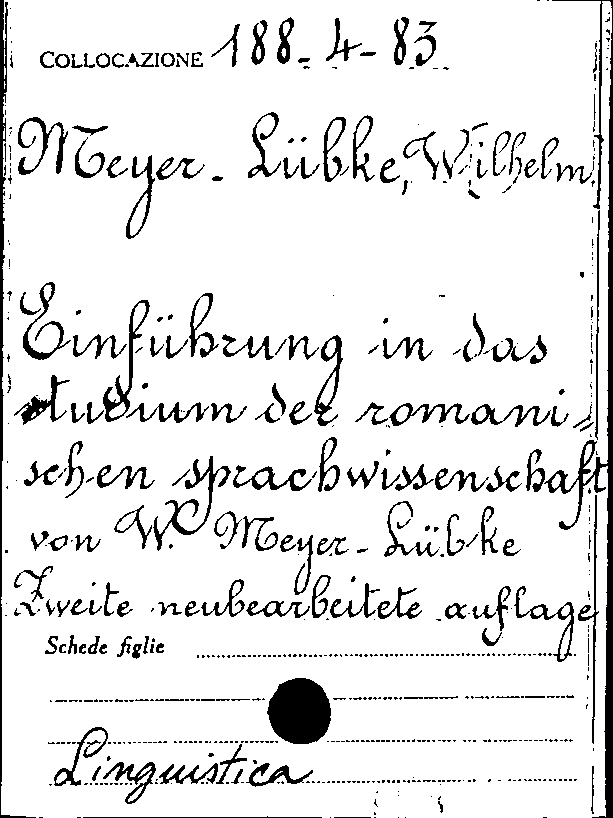 COLLOCAZIONE 188-4-83
Meyer-Lübke, Wilhelm
Einführung in das
studium der romani=
schen sprachwissenschaft
von W. Meyer-Lübke
Zweite neubearbeitete auflage
Schede figlie
Linguistica